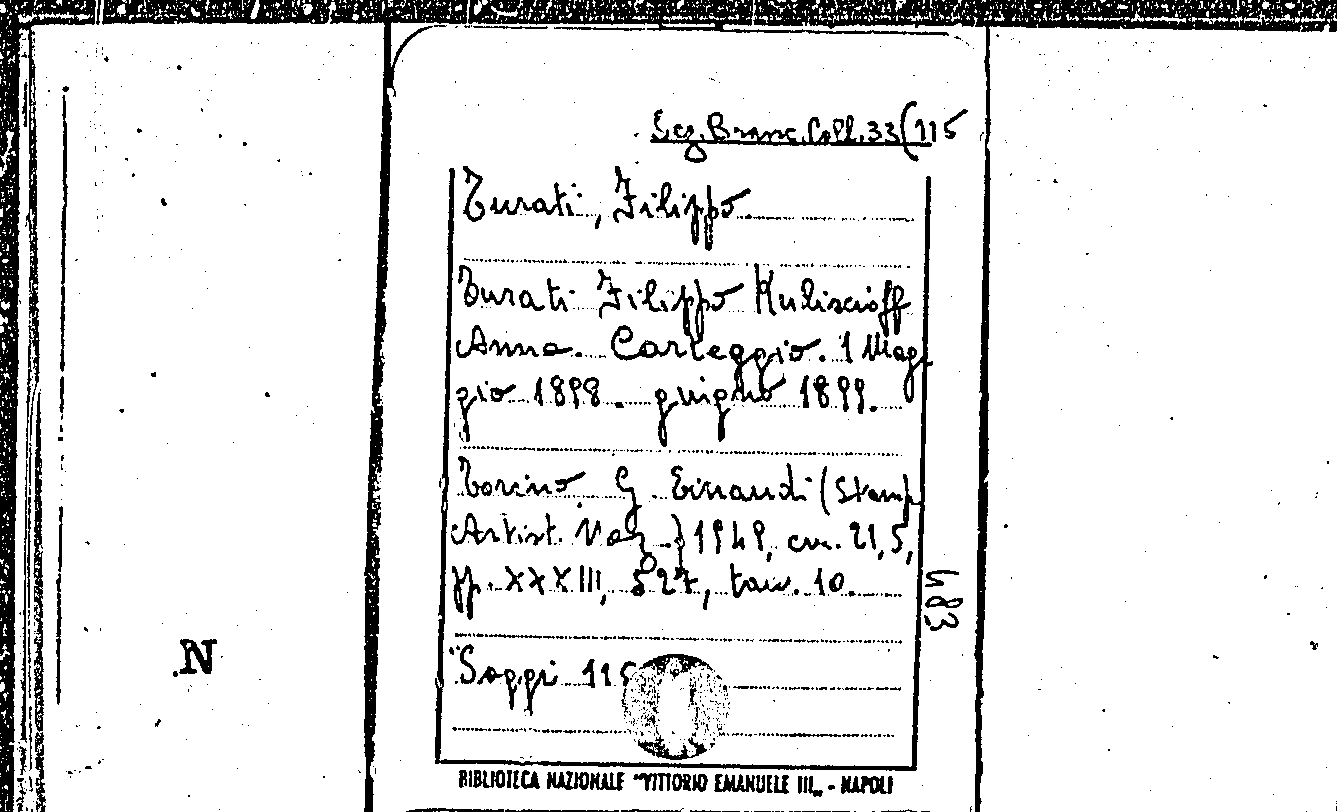 Sez. Branc. Coll. 33(115
Turati, Filippo
Turati Filippo Kuliscioff
Anna. Carteggio. 1 Mag
gio 1898 - giugno 1899.
Torino G. Einaudi (Stamp
Artist. Naz.) 1949, cm. 21,5,
pp. XXXIII, 527, tav. 10.
"Saggi 115
483
N
BIBLIOTECA NAZIONALE "VITTORIO EMANUELE III„ - NAPOLI